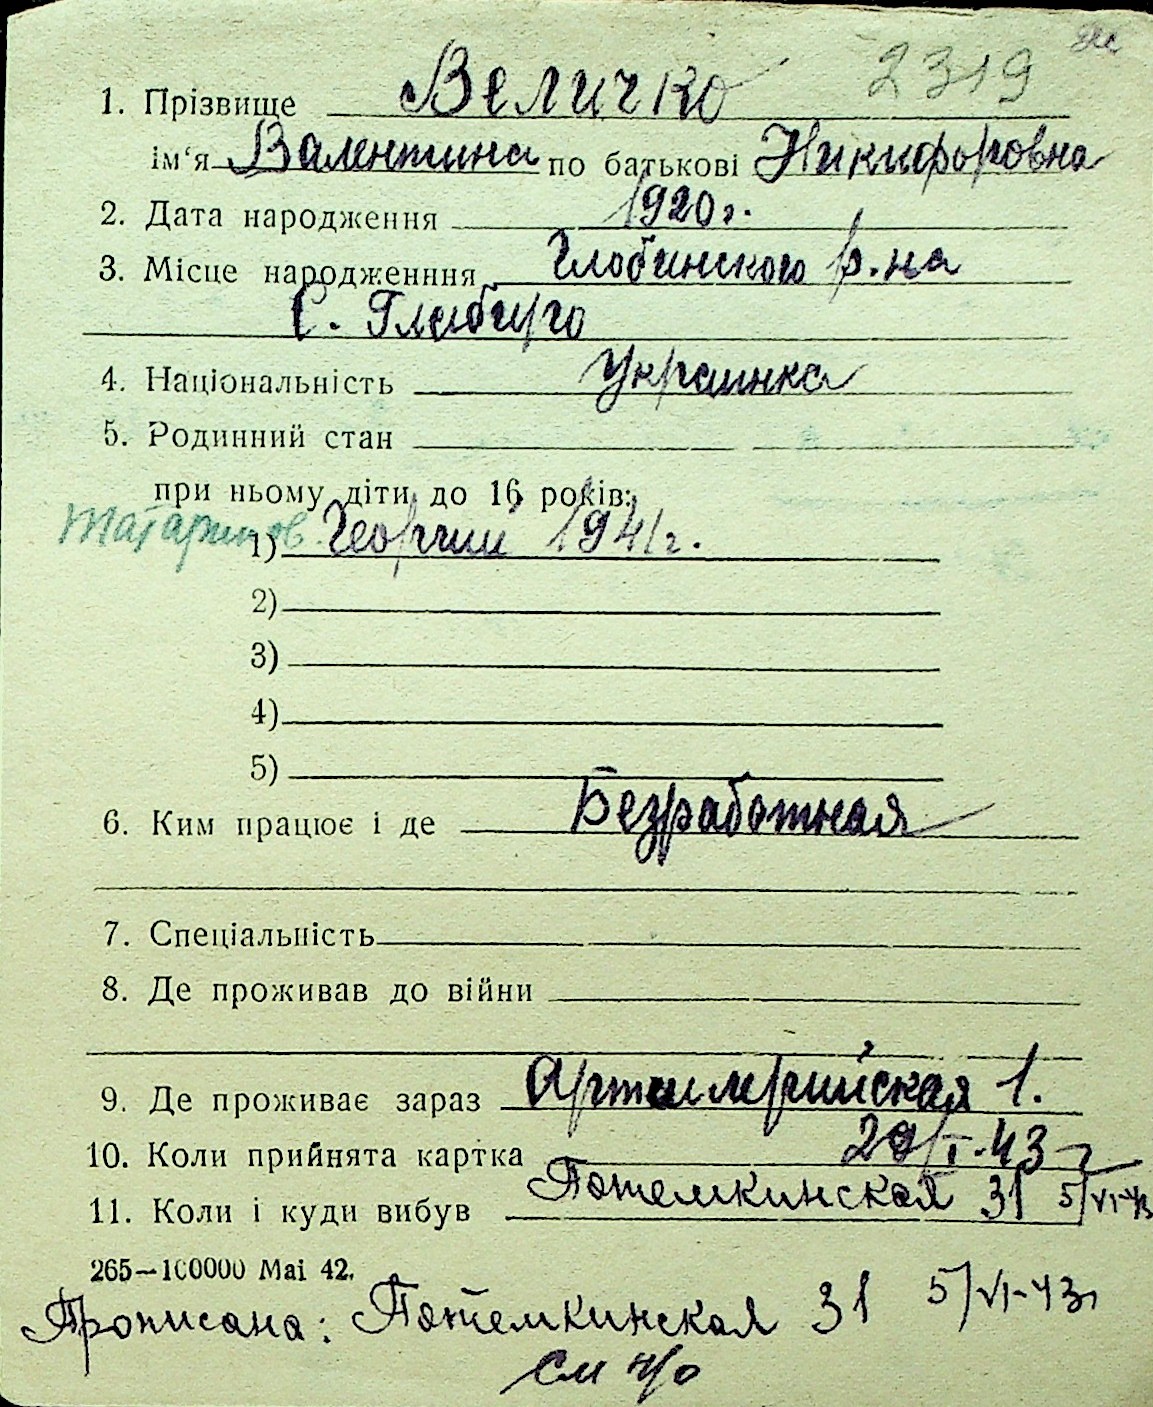 2319
1. Прізвище Величко
ім'я Валентина по батькові Никифоровна
2. Дата народження 1920 г.
3. Місце народженння Глобинского р.на
С.
4. Національність Украинка
5. Родинний стан
при ньому діти до 16 років:
Татаринов 1) Георгий 1941 г.
2)
3)
4)
5)
6. Ким працює і де Безработная
7. Спеціальність
8. Де проживав до війни
9. Де проживає зараз Артилерийская 1.
10. Коли прийнята картка 20/I-43 г
11. Коли і куди вибув Потемкинская 31 5/VI-43
265—100000 Mai 42.
Прописана: Потемкинская 31 5/VI-43г
см н/о